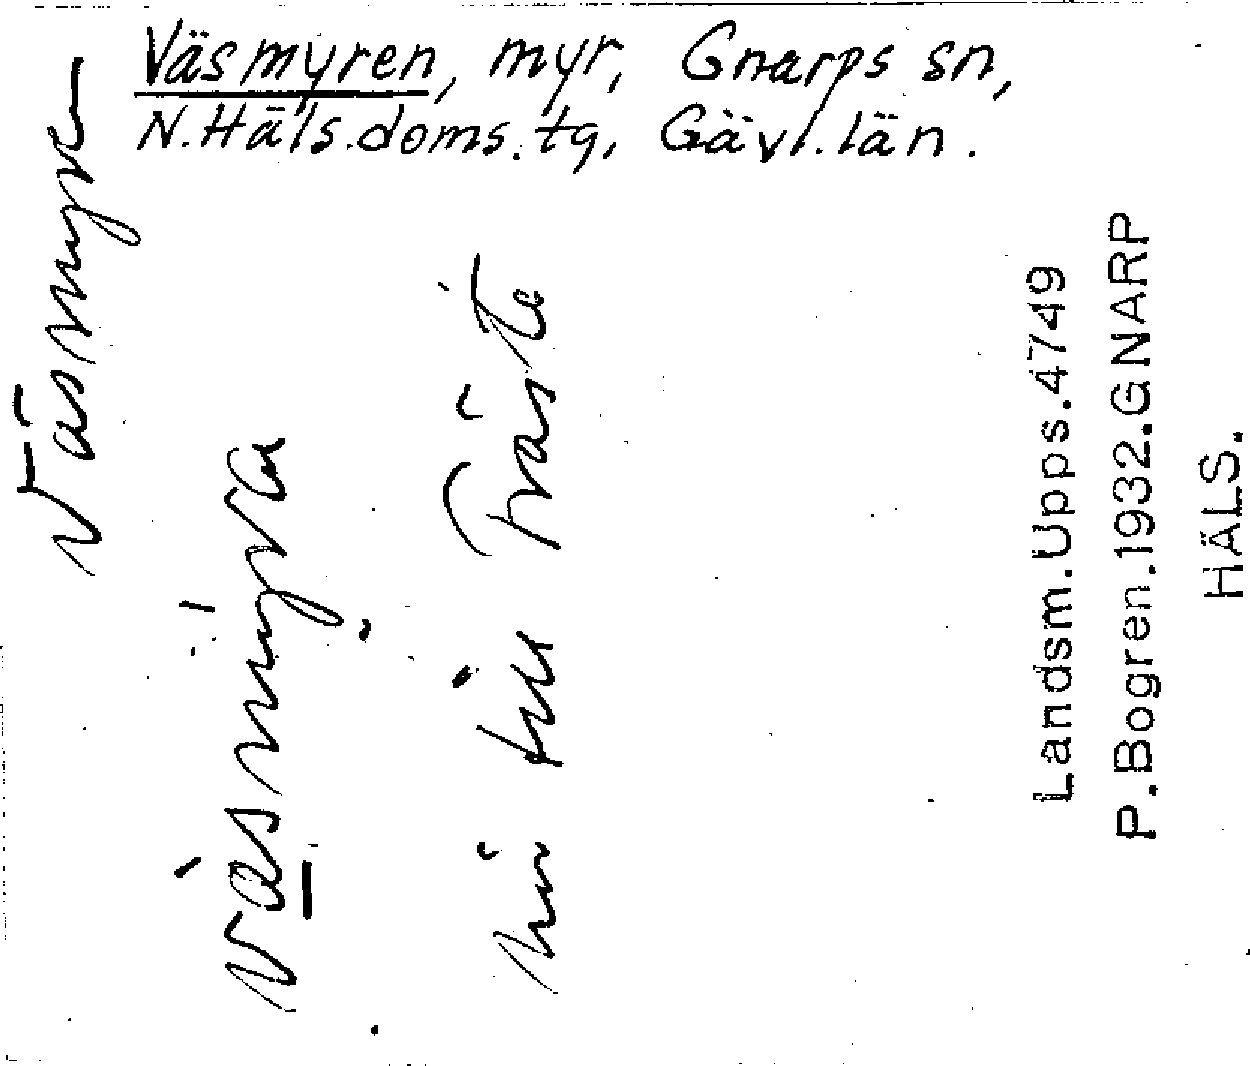 Väsmyren, myr, Gnarps sn,
N.Häls.doms.tg, Gävl.län.
Väsmyre
väsmyra
hör till Träste
Landsm.Upps.4749
P.Bogren.1932.GNARP
HÄLS.